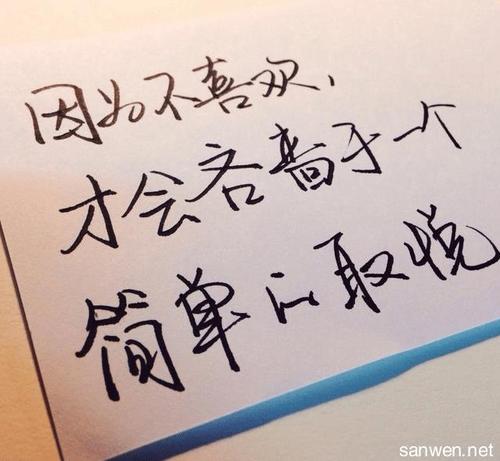 因为不喜欢，
才会吝啬于一个
简单的取悦
sanwen.net